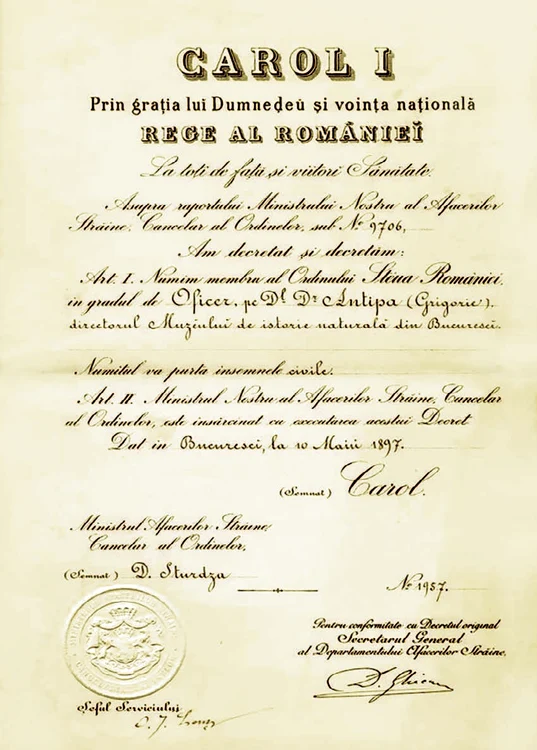 CAROL I
Prin grația lui Dumnedeŭ și voința națională
REGE AL ROMÂNIEĬ
La toți de față și viitori Sănătate.
Asupra raportului Ministrului Nostru al Afacerilor
Străine, Cancelar al Ordinelor, sub № 9706,
Am decretat și decretăm:
Art. I. Numim membru al Ordinului Steua Romăniei,
in gradul de Oficer, pe Dl Dr Antipa (Grigorie),
directorul Muzeului de istorie naturală din Bucuresci.
Numitul va purta insemnele civile.
Art. II. Ministrul Nostru al Afacerilor Străine, Cancelar
al Ordinelor, este insărcinat cu executarea acestui Decret
Dat in Bucuresci, la 10 Maiŭ 1897.
(Semnat) Carol.
Ministrul Afacerilor Străine,
Cancelar al Ordinelor,
(Semnat) D. Sturdza
№ 1957.
Pentru conformitate cu Decretul original
Secretarul General
al Departamentului Afacerilor Străine,
Șeful Serviciului